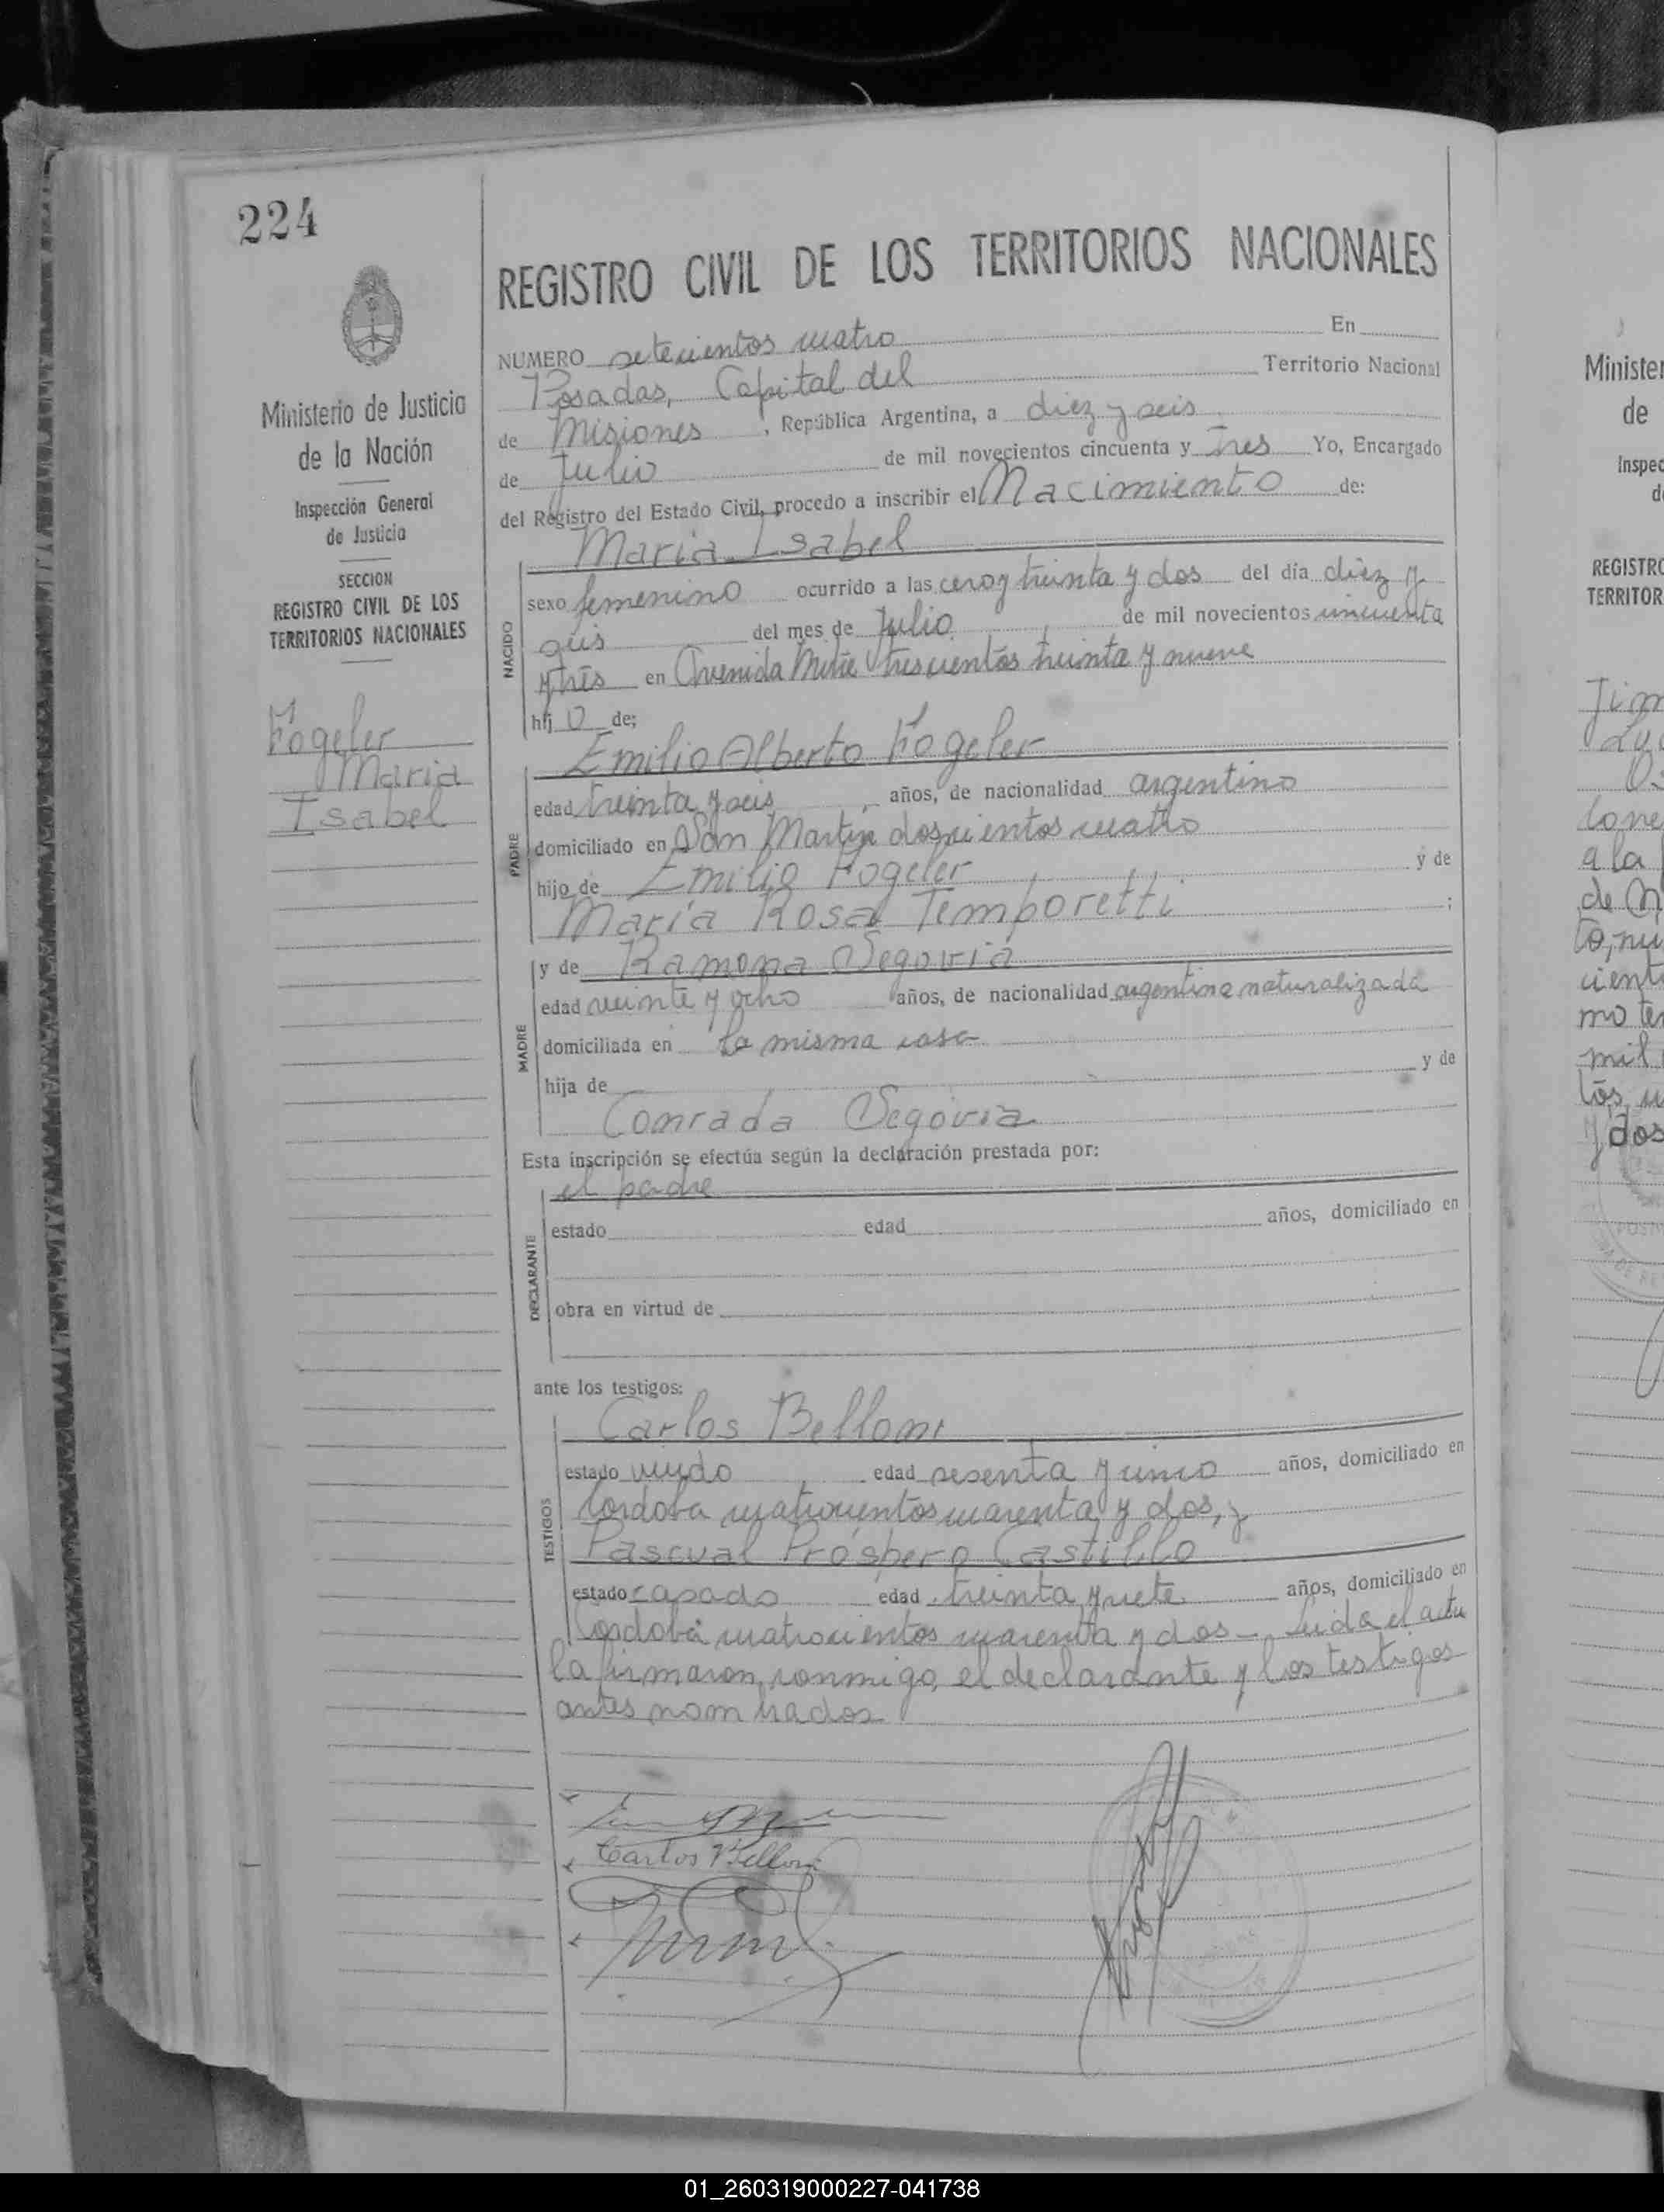 224
REGISTRO CIVIL DE LOS TERRITORIOS NACIONALES
Ministerio de Justicia
de la Nación
Inspección General
de Justicia
SECCION
REGISTRO CIVIL DE LOS
TERRITORIOS NACIONALES
Fogeler
Maria
Isabel
NUMERO setecientos cuatro En
Posadas, Capital del Territorio Nacional
de Misiones, República Argentina, a diez y seis
de Julio de mil novecientos cincuenta y tres Yo, Encargado
del Registro del Estado Civil, procedo a inscribir el Nacimiento de:
Maria Isabel
NACIDO
sexo femenino ocurrido a las cero y treinta y dos del día diez y
seis del mes de Julio de mil novecientos cincuenta
y tres en Avenida Mitre trescientos treinta y nueve
hij o de;
Emilio Alberto Fogeler
PADRE
edad treinta y seis años, de nacionalidad argentino
domiciliado en San Martín doscientos cuatro
hijo de Emilio Fogeler y de
María Rosa Temporetti ;
MADRE
y de Ramona Segovia
edad veinte y ocho años, de nacionalidad argentina naturalizada
domiciliada en la misma casa
hija de y de
Conrada Segovia
Esta inscripción se efectúa según la declaración prestada por:
DECLARANTE
el padre
estado edad años, domiciliado en
obra en virtud de
ante los testigos:
TESTIGOS
Carlos Belloni
estado viudo edad sesenta y cinco años, domiciliado en
Cordoba cuatrocientos cuarenta y dos, y
Pascual Próspero Castillo
estado casado edad treinta y siete años, domiciliado en
Cordoba cuatrocientos cuarenta y dos - Leida el acta
la firmaron conmigo, el declarante y los testigos
antes nombrados
Carlos Belloni
Minister
de
Inspec
d
REGISTRO
TERRITOR
a la
de
mo
mil
y dos
01_260319000227-041738